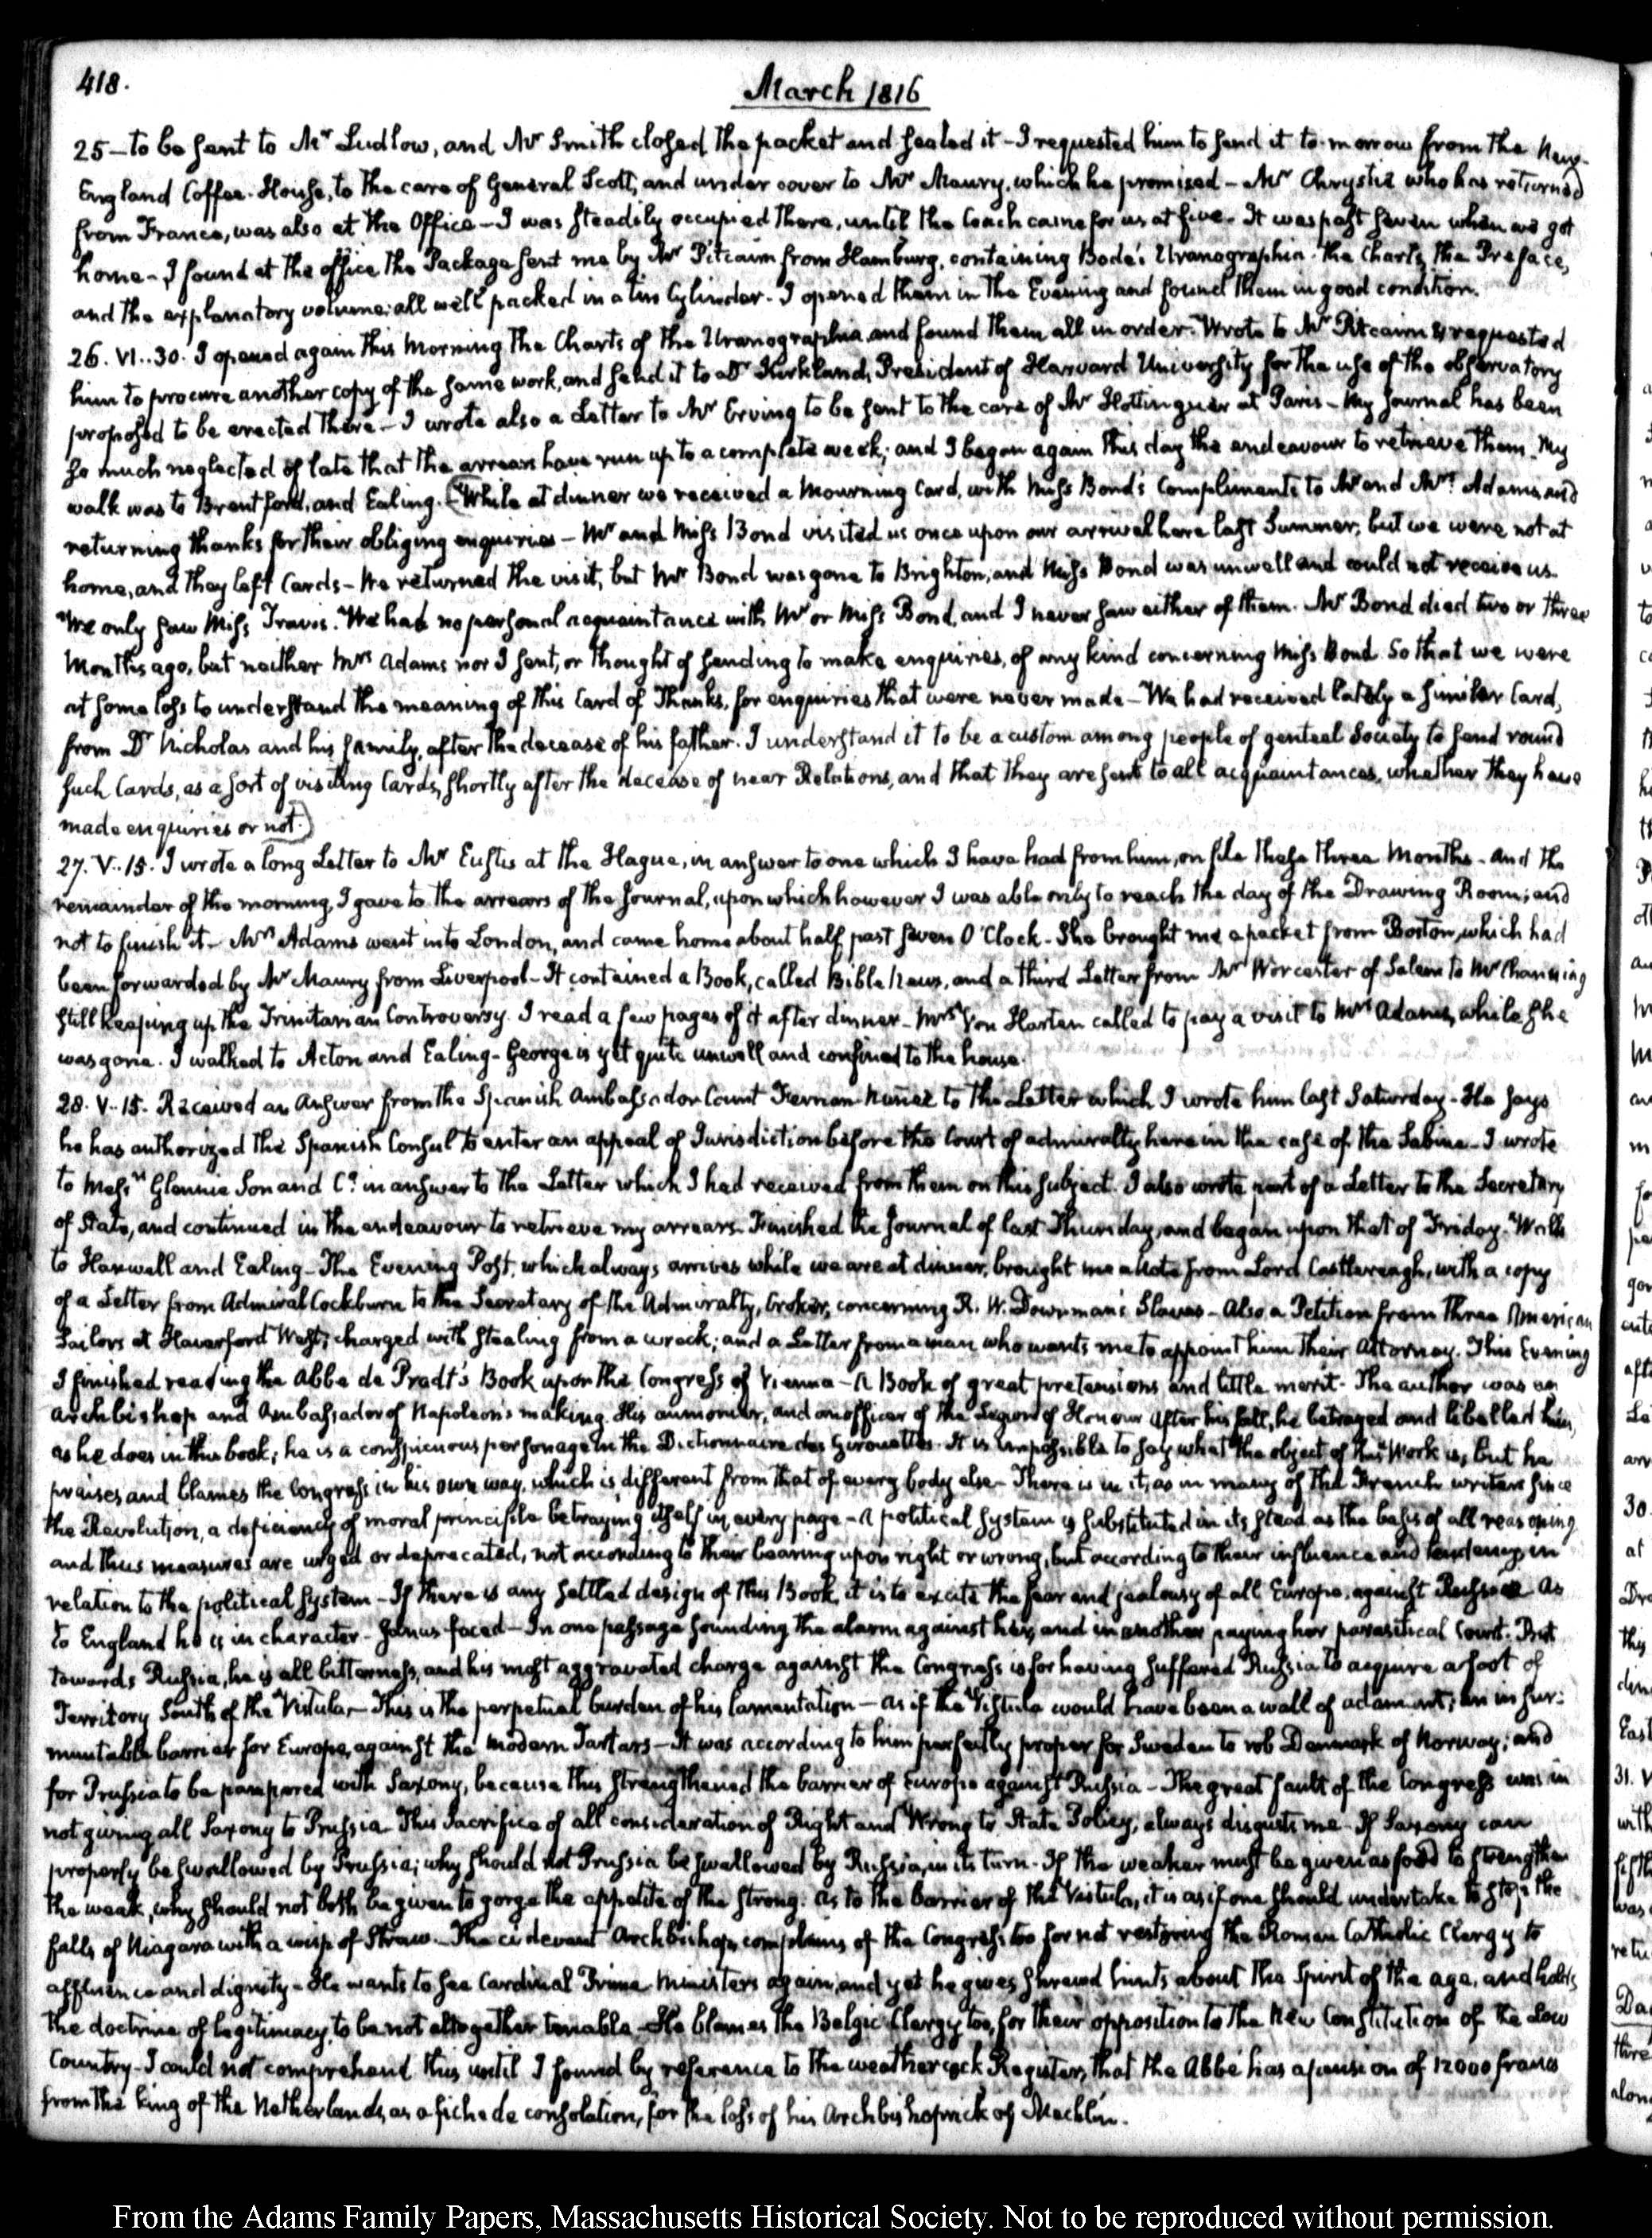 418.
March 1816
25 – to be sent to Mr Ludlow, and Mr Smith closed the packet and sealed it – I requested him to send it to-morrow from the New-
England Coffee-House, to the care of General Scott, and under cover to Mr Maury, which he promised – Mr Chrystie who has returned
from France, was also at the Office – I was steadily occupied there, until the Coach came for us at five. It was past seven when we got
home – I found at the office the Package sent me by Mr Pitcairn from Hamburg, containing Bode's Uranographia – the Charts, the Preface,
and the explanatory volume; all well packed in a tin Cylinder. I opened them in the Evening and found them in good condition.
26. VI..30. I opened again this Morning the Charts of the Uranographia, and found them all in order. Wrote to Mr Pitcairn & requested
him to procure another copy of the same work, and send it to Dr Kirkland, President of Harvard University for the use of the observatory
proposed to be erected there – I wrote also a Letter to Mr Erving to be sent to the care of Mr Hottinguer at Paris – My Journal has been
so much neglected of late that the arrears have run up to a complete week; and I began again this day the endeavour to retrieve them. My
walk was to Brentford, and Ealing. (While at dinner we received a Mourning Card, with Miss Bond's Compliments to Mr and Mrs Adams and
returning thanks for their obliging enquiries – Mr and Miss Bond visited us once upon our arrival here last Summer; but we were not at
home, and they left Cards – We returned the visit, but Mr Bond was gone to Brighton, and Miss Bond was unwell and could not receive us.
We only saw Miss Travis. We had no personal acquaintance with Mr or Miss Bond, and I never saw either of them. Mr Bond died two or three
Months ago, but neither Mrs Adams nor I sent, or thought of sending to make enquiries, of any kind concerning Miss Bond. So that we were
at some loss to understand the meaning of this Card of Thanks, for enquiries that were never made – We had received lately a similar Card,
from Dr Nicholas and his family, after the decease of his father. I understand it to be a custom among people of genteel Society to send round
such Cards, as a sort of visiting Cards, shortly after the decease of near Relations, and that they are sent to all acquaintances, whether they have
made enquiries or not.)
27. V..15. I wrote a long Letter to Mr Eustis at the Hague, in answer to one which I have had from him, on file these three Months – and the
remainder of the morning, I gave to the arrears of the Journal, upon which however I was able only to reach the day of the Drawing Room; and
not to finish it – Mrs Adams went into London, and came home about half past seven O'Clock – She brought me a packet from Boston, which had
been forwarded by Mr Maury from Liverpool – It contained a Book, called Bible News, and a third Letter from Mr Worcester of Salem to Mr Channing
still keeping up the Trinitarian Controversy. I read a few pages of it after dinner – Mrs Von Harten called to pay a visit to Mrs Adams, while she
was gone. I walked to Acton and Ealing – George is yet quite unwell and confined to the house.
28. V..15. Received an Answer from the Spanish Ambassador Count Fernan-Nuñez to the Letter which I wrote him last Saturday – He says
he has authorized the Spanish Consul to enter an appeal of Jurisdiction before the Court of admiralty here in the case of the Sabine – I wrote
to Messrs Glennie Son and Co. in answer to the Letter which I had received from them on this subject. I also wrote part of a Letter to the Secretary
of State, and continued in the endeavour to retrieve my arrears. Finished the Journal of last Thursday, and began upon that of Friday. Walk
to Hanwell and Ealing – The Evening Post, which always arrives while we are at dinner, brought me a Note from Lord Castlereagh, with a copy
of a Letter from Admiral Cockburn to the Secretary of the Admiralty, Croker, concerning R. W. Downman's Slaves – Also a Petition from three American
Sailors at Haverford West; charged with stealing from a wreck; and a Letter from a man who wants me to appoint him their Attorney. This Evening
I finished reading the Abbé de Pradt's Book upon the Congress of Vienna – A Book of great pretensions and little merit. The author was an
archbishop and Ambassador of Napoleon's making. His aumonier, and an officer of the Legion of Honour. After his fall, he betrayed and libelled him,
as he does in this book; he is a conspicuous personage in the Dictionnaire des Girouettes. It is impossible to say what the object of this Work is, but he
praises and blames the Congress in his own way, which is different from that of every body else – There is in it, as in many of the French writers since
the Revolution, a deficiency of moral principle betraying itself in every page – A political system is substituted in its stead, as the basis of all reasoning
and thus measures are urged or deprecated, not according to their bearing upon right or wrong, but according to their influence and tendency in
relation to the political system – If there is any settled design of this Book, it is to excite the fear and jealousy of all Europe, against Russia. As
to England he is in character – Janus-faced – In one passage sounding the alarm against her, and in another paying her parasitical Court. But
towards Russia, he is all bitterness, and his most aggravated charge against the Congress is for having suffered Russia to acquire a foot of
Territory South of the Vistula – This is the perpetual burden of his lamentation – as if the Vistula would have been a wall of adamant; an insur-
mountable barrier for Europe, against the modern Tartars – It was according to him perfectly proper for Sweden to rob Denmark of Norway; and
for Prussia to be pampered with Saxony, because this strengthened the barrier of Europe against Russia – The great fault of the Congress was in
not giving all Saxony to Prussia. This Sacrifice of all consideration of Right and Wrong to State Policy, always disgusts me. If Saxony can
properly be swallowed by Prussia; why should not Prussia be swallowed by Russia, in its turn. If the weaker must be given as food to strengthen
the weak, why should not both be given to gorge the appetite of the strong. As to the barrier of the Vistula, it is as if one should undertake to stop the
falls of Niagara with a wisp of Straw. – The ci-devant Archbishop complains of the Congress too for not restoring the Roman Catholic Clergy to
affluence and dignity – He wants to see Cardinal Prime Ministers again, and yet he gives shrewd hints about the Spirit of the age, and holds
the doctrine of legitimacy, to be not altogether tenable – He blames the Belgic Clergy too, for their opposition to the New Constitution of the Low
Country – I could not comprehend this until I found by reference to the weathercock Register, that the Abbé has a pension of 12000 francs
from the king of the Netherlands, as a fiche de consolation, for the loss of his Archbishoprick of Mechlin.
From the Adams Family Papers, Massachusetts Historical Society. Not to be reproduced without permission.